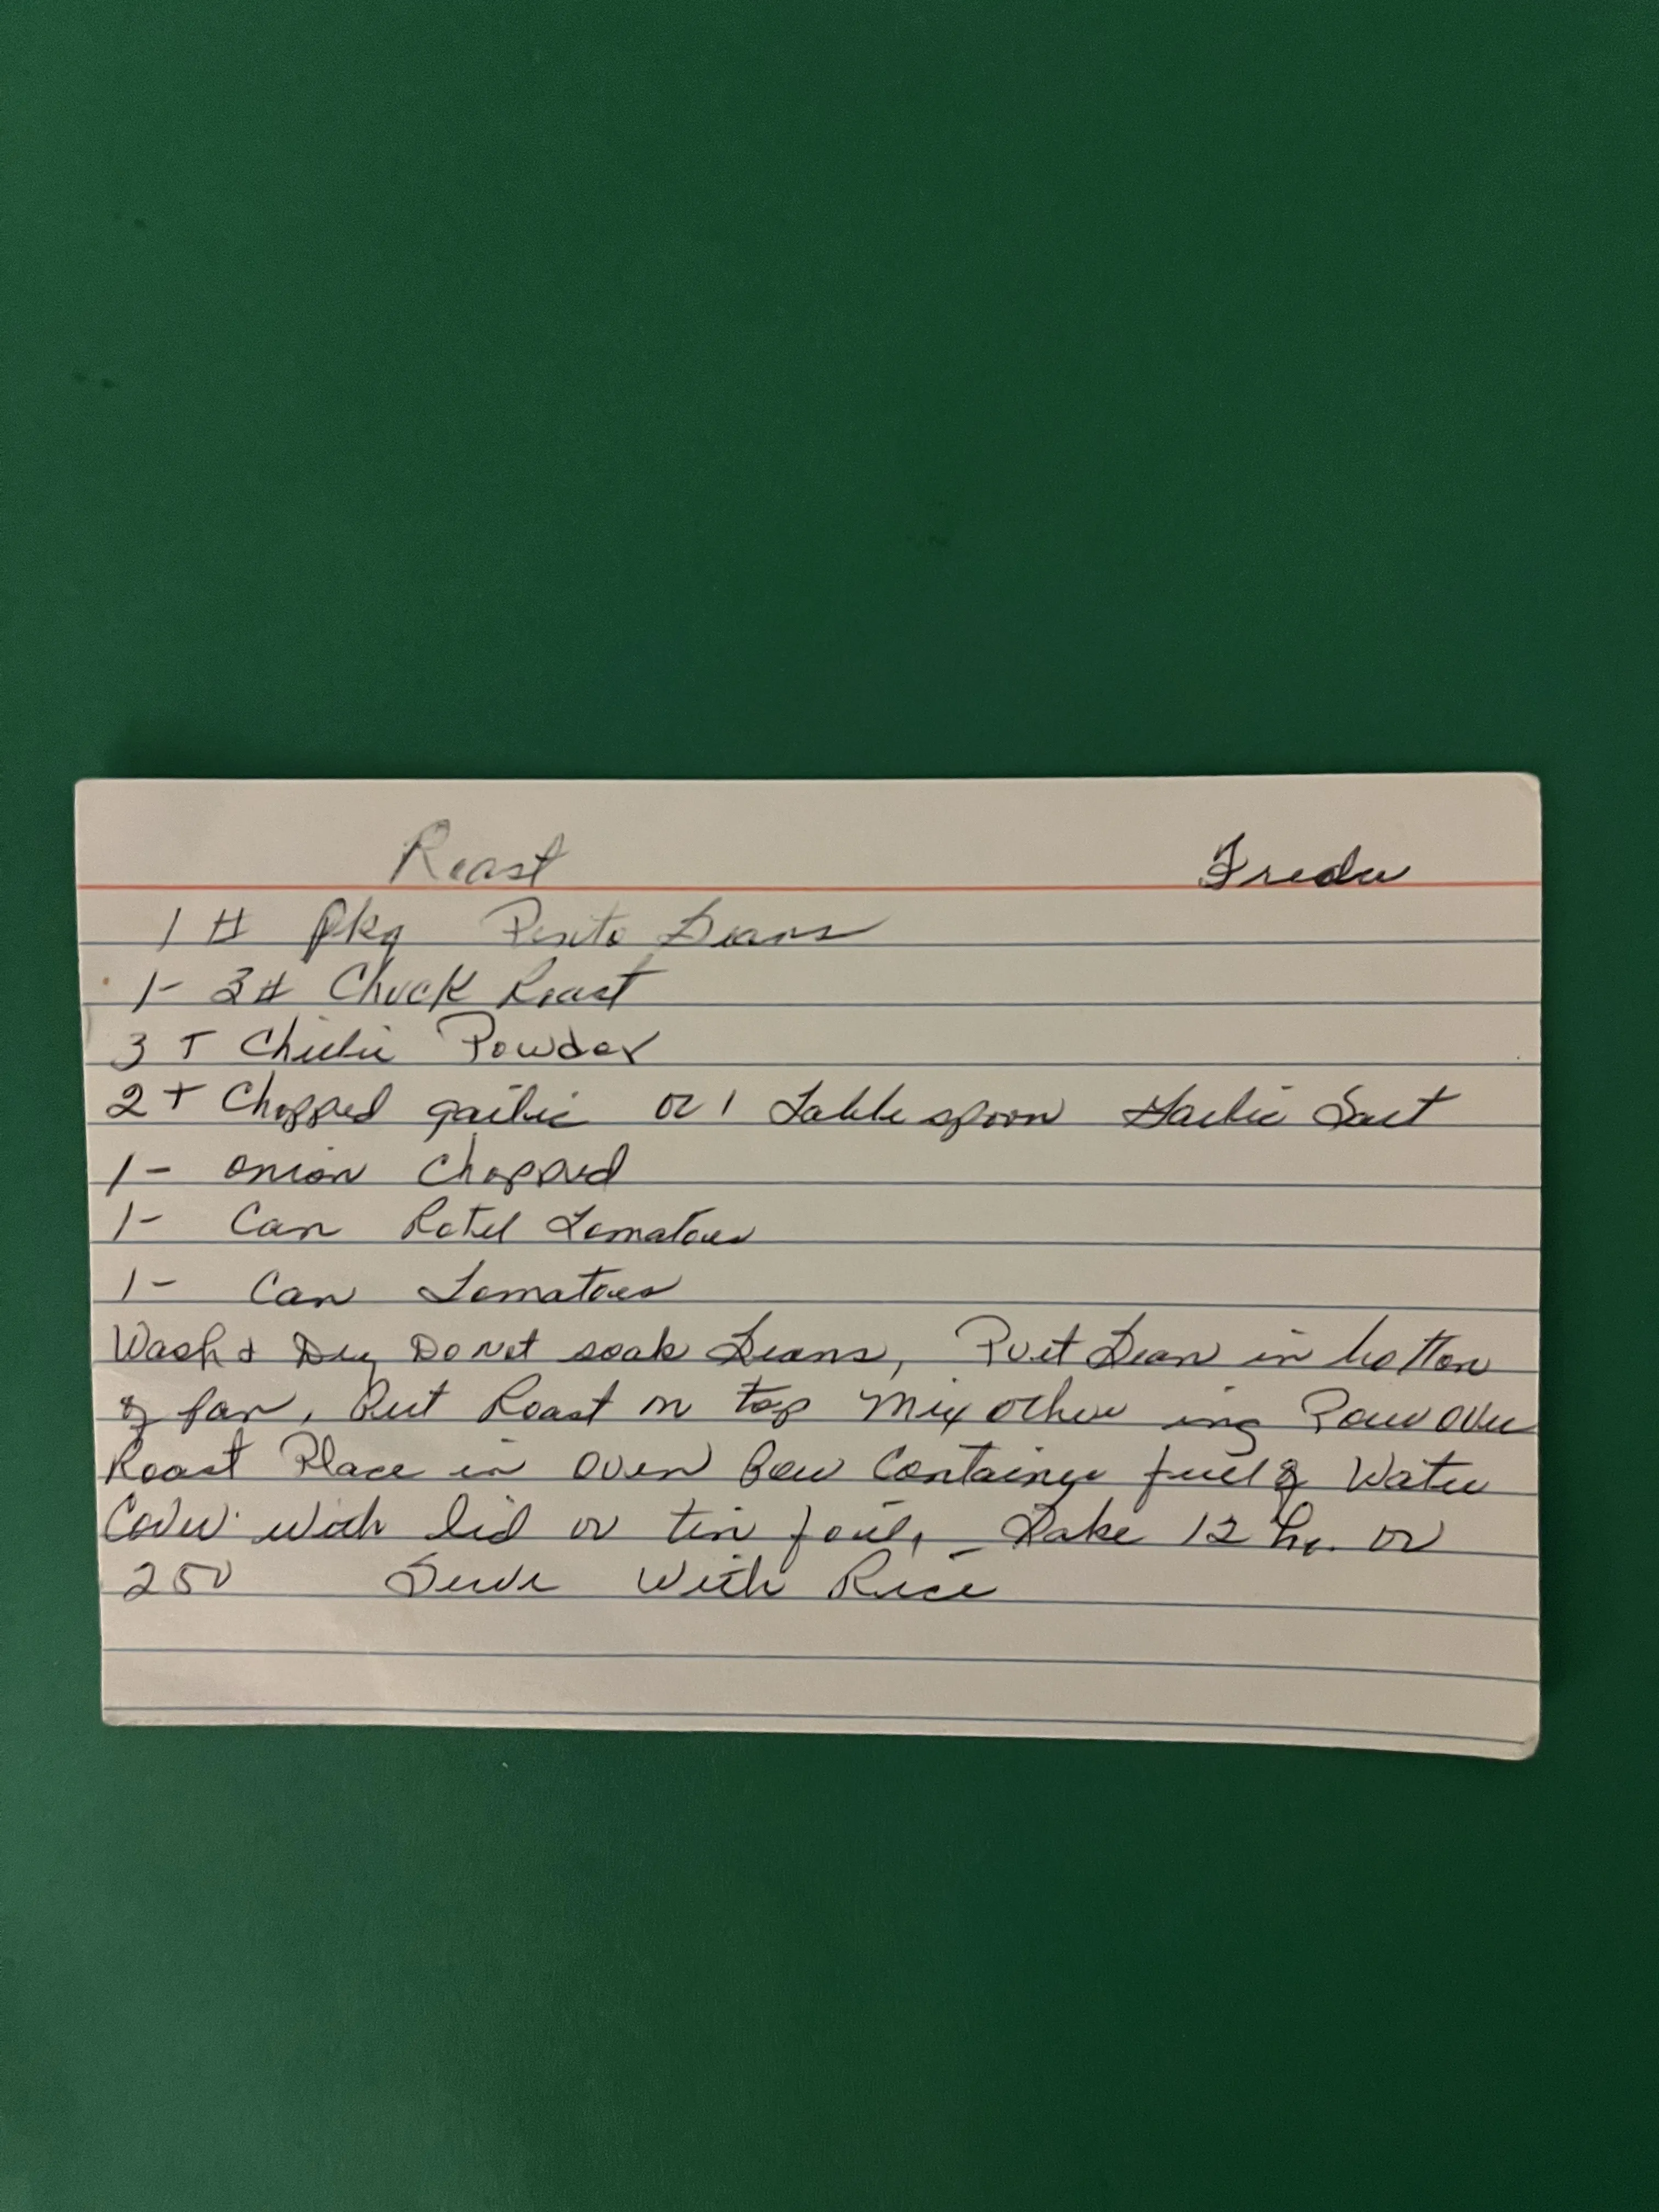 Roast Freda
1 # pkg Pinto Beans
1- 3# Chuck Roast
3 T Chilie Powder
2 T Chopped garlic or 1 Tablespoon Garlic Salt
1- onion Chopped
1- Can Rotel Tomatoes
1- Can Tomatoes
Wash & Dry Do Not soak Beans, Put Bean in botton
of pan, Put Roast on top Mix other ing Pour over
Roast Place in oven Container full of Water
Cover with lid or tin foil, Bake 12 hr. or
250 Serve With Rice